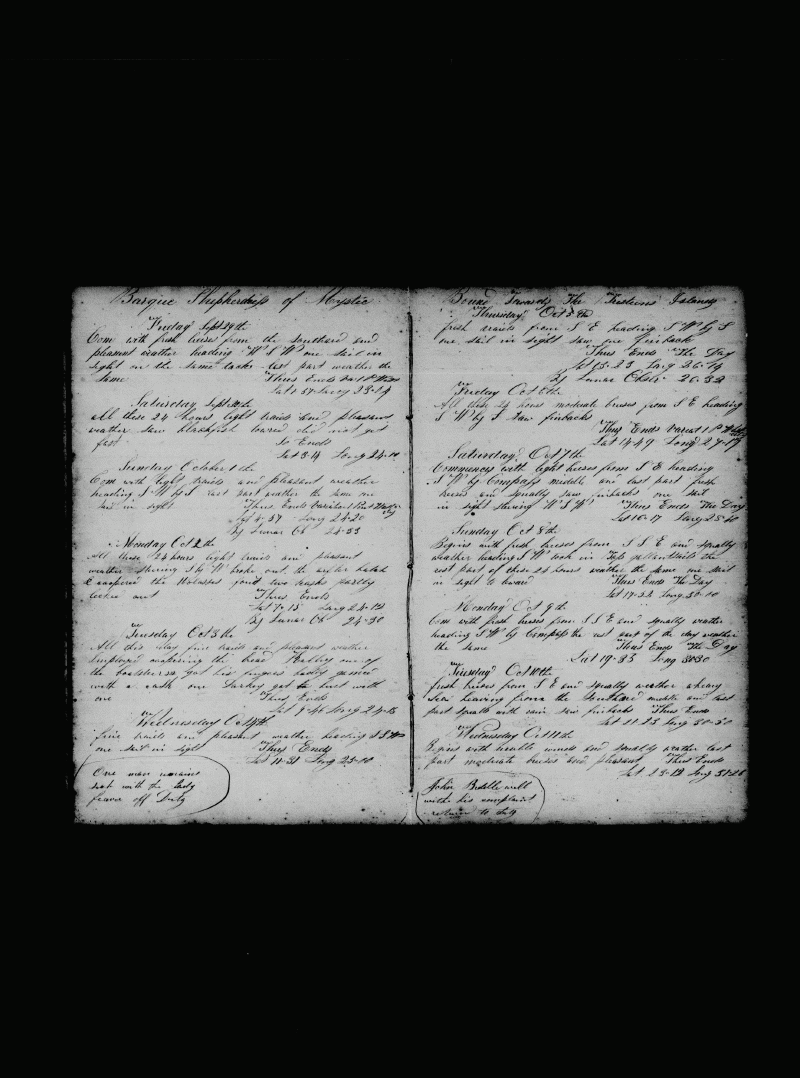 Barque Shepherdess of Mystic
Friday Sept 29th
Com with fresh brises from the southard and
pleasant weather heading W S W one sail in
sight on the same tacks last part weather the
same Thus Ends
Lat 1-57 Long 23-24
Saturday Sept 30th
all these 24 hours light traids and pleasant
weather saw blackfish lowered did not get
fast So Ends
Lat 3-14 Long 24-10
Sunday October 1th
Com with light traids and pleasant weather
heading S W by S last part weather the same one
sail in sight Thus Ends
Long 24-20
By Lunar Ob 24-33
Monday Oct 2th
All these 24 hours light traids and pleasant
weather stering S by W broke out the after hatch
the Molasses found two casks partly
leaked out Thus Ends
Lat 7-15 Long 24-12
By Lunar Ob 24-30
Tuesday Oct 3th
All this day fine traids and pleasant weather
Employed the head one of
the got his fingers badly jamed
with a cask one Turkey got hurt with
one Thus Ends
Lat 9-46 Long 24-16
Wednesday Oct 4th
fine traids and pleasant weather heading
one sail in sight Thus Ends
Lat 11-31 Long 25-10
One man remains
sick with the
fever off Duty
Bound Towards The Islands
Thursday Oct 5th
fresh traids from S E heading S W by S
one sail in sight saw one finback
Thus Ends The Day
Lat 13-23 Long 26-14
By Lunar Obsr 26-32
Friday Oct 6th
All these 24 hours moderate brises from S E heading
S W by S saw finbacks
Thus Ends
Lat 14-49 Long 27-17
Saturday Oct 7th
Comences with light brises from S E heading
S W by Compass middle and last part fresh
brises and squally saw finbacks one sail
in sight stering W S W Thus Ends The Day
Lat 16-17 Long 28-40
Sunday Oct 8th
Begins with fresh brises from S S E and squally
weather heading S W took in
last part of these 24 hours weather the same one sail
in sight to leward Thus Ends The Day
Lat 17-54 Long 30-10
Monday Oct 9th
Com with fresh brises from S S E and squally weather
heading S W by Compass the last part of the day weather
the same Thus Ends The Day
Lat 19-33 Long 30 30
Tuesday Oct 10th
fresh brises from S E and squally weather a heavy
sea heaving from the Southard middle and last
part squalls with rain saw finbacks Thus Ends
Lat 21-23 Long 30-50
Wednesday Oct 11th
Begins with winds and squally weather last
part moderate brises and pleasant Thus Ends
Lat 23-12 Long 31-26
John
with his complaint
return to duty